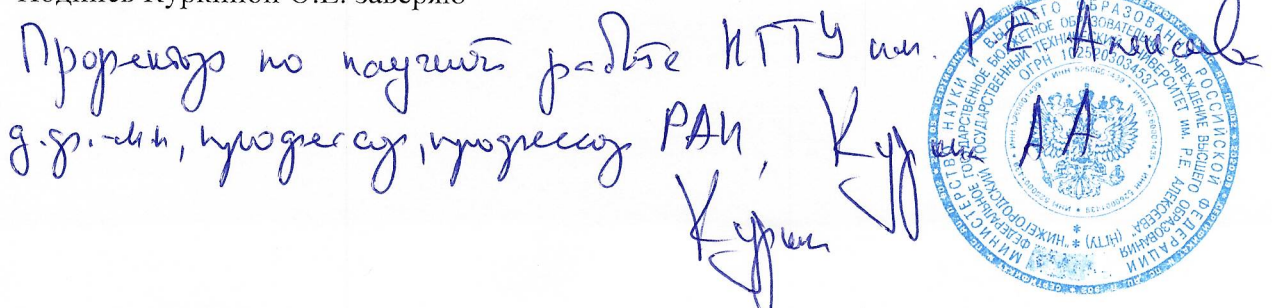 Подпись Куркиной О.Е. заверяю
Проректор по научной работе НГТУ им. Р.Е. Алексеева
д.ф.-мн, профессор, профессор РАН, Куркин АА
МИНИСТЕРСТВО НАУКИ И ВЫСШЕГО ОБРАЗОВАНИЯ РОССИЙСКОЙ ФЕДЕРАЦИИ
ФЕДЕРАЛЬНОЕ ГОСУДАРСТВЕННОЕ БЮДЖЕТНОЕ ОБРАЗОВАТЕЛЬНОЕ УЧРЕЖДЕНИЕ ВЫСШЕГО ОБРАЗОВАНИЯ
"НИЖЕГОРОДСКИЙ ГОСУДАРСТВЕННЫЙ ТЕХНИЧЕСКИЙ УНИВЕРСИТЕТ ИМ. Р.Е. АЛЕКСЕЕВА" (НГТУ)
ОГРН 1025203034537